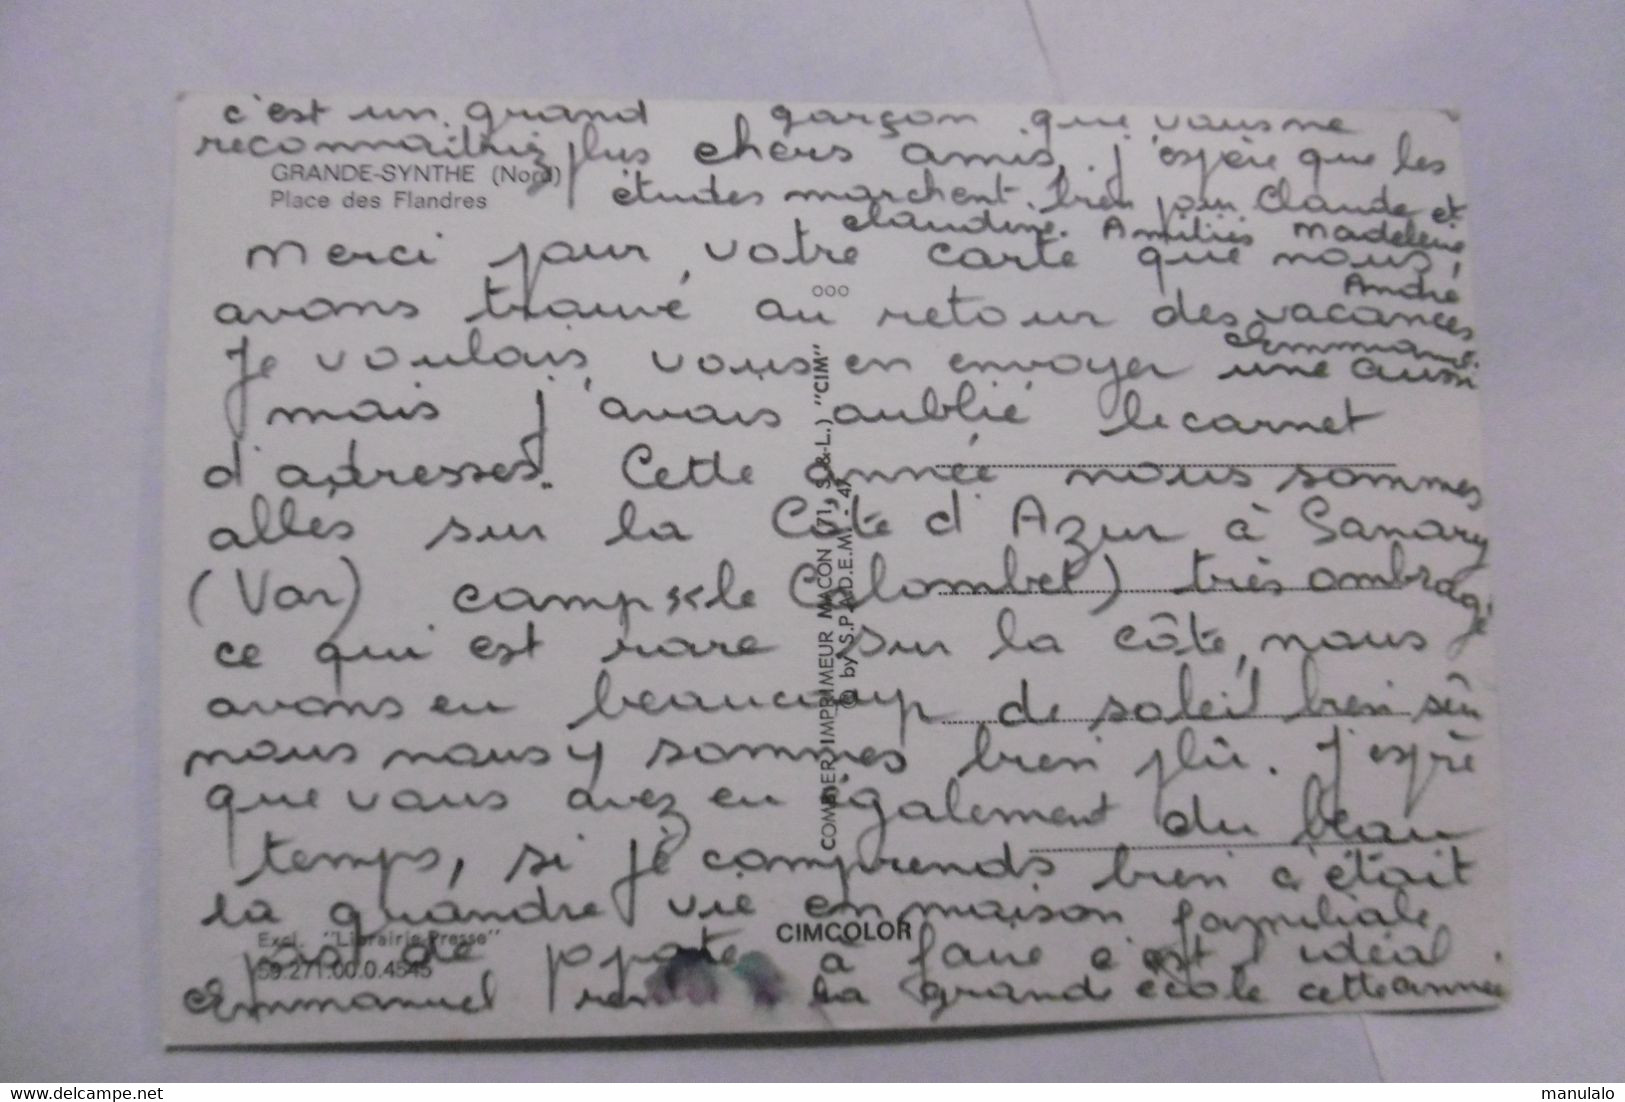 c'est un grand garçon que vous ne
reconnaitriez plus chers amis, j'espère que les
études marchent bien pour Claude et
Claudine. Amitiés Madeleine
André
Emmanuel
GRANDE-SYNTHE (Nord)
Place des Flandres
Merci pour votre carte que nous
avons trouvé au retour des vacances
Je voulais vous en envoyer une aussi
mais j'avais oublié le carnet
d'adresses. Cette année nous sommes
allés sur la Côte d'Azur à Sanary
(Var) camp le Colombet) très ombragé
ce qui est rare sur la côte, nous
avons eu beaucoup de soleil bien sûr
nous nous y sommes bien plû. J'espère
que vous avez eu également du beau
temps, si je comprends bien c'était
la grande vie en maison familiale
pas de à faire c'est l'idéal
Emmanuel la grande école cette année
COMBIER IMPRIMEUR MACON (71, S.-&-L.) "CIM"
© by S.P.A.D.E.M. - 47
Excl. "Librairie-Presse"
59.271.00.0.4545
CIMCOLOR
manulalo